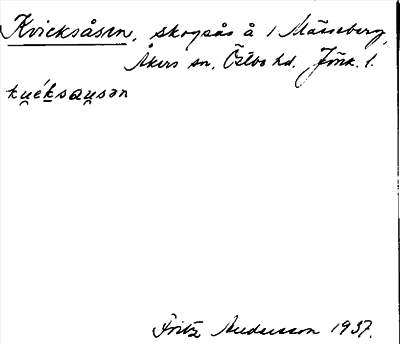 Kvicksåsen, skogsås å 1 Måsseberg,
Åkers sn, Östbo hd. Jönk. l.
ku̯éksau̯sən
Fritz Andersson 1937.